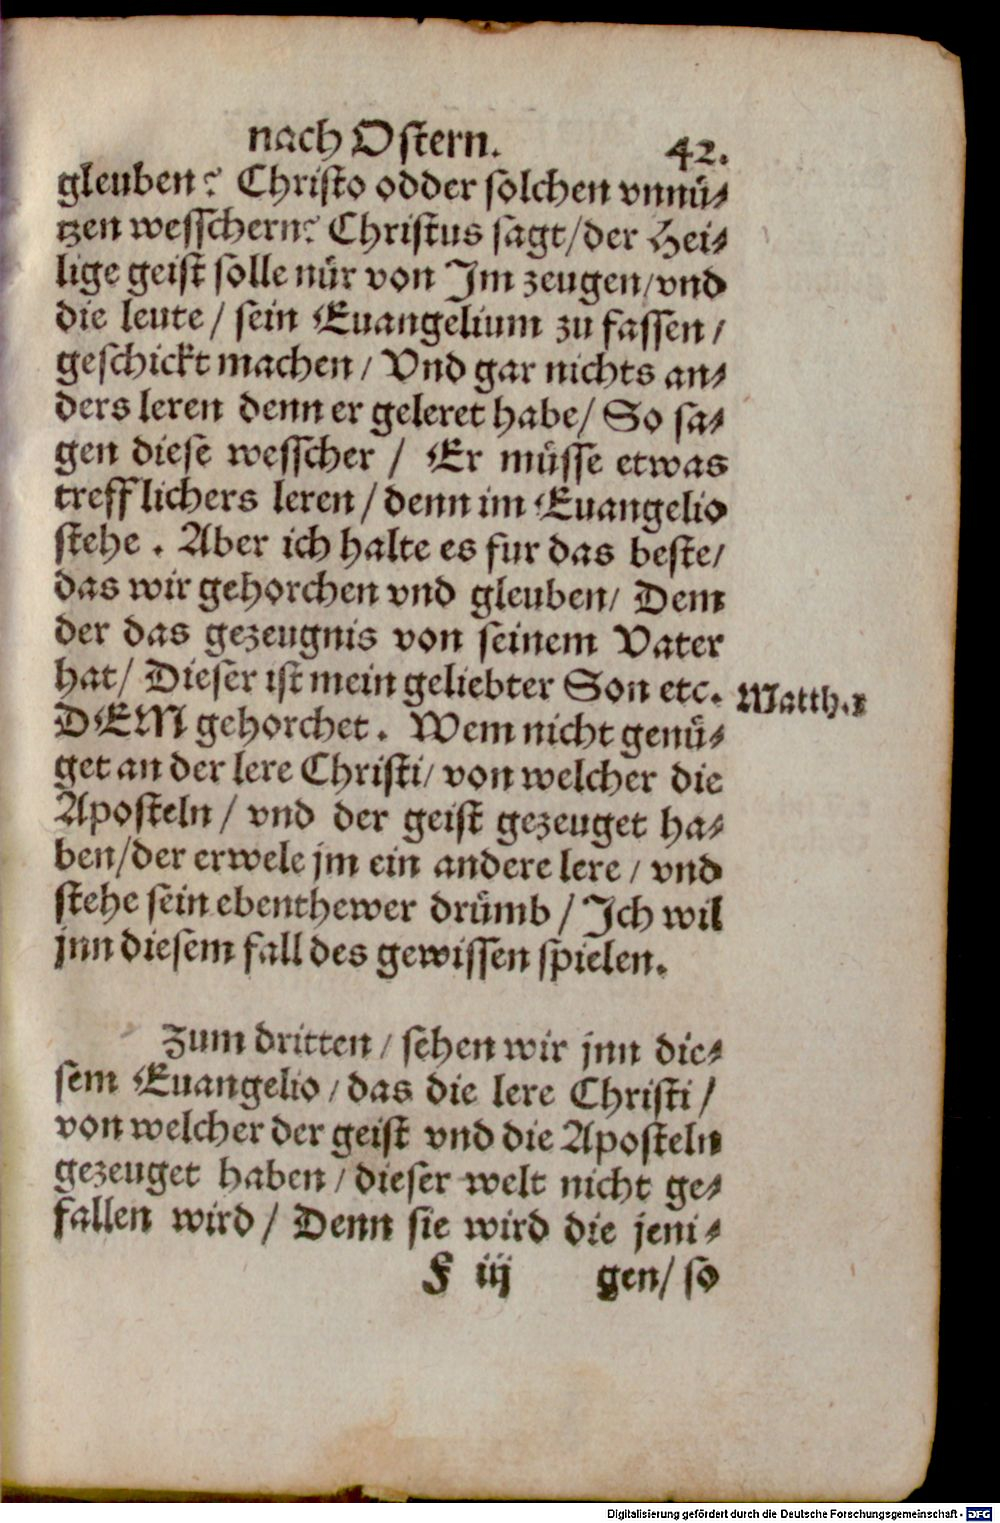 nach Ostern. 42.
gleuben? Christo odder solchen vnnü⸗
tzen wesschern? Christus sagt/der Hei⸗
lige geist solle nür von Jm zeugen/vnd
die leute / sein Euangelium zu fassen /
geschickt machen / Vnd gar nichts an⸗
ders leren denn er geleret habe/ So sa⸗
gen diese wesscher / Er müsse etwas
trefflichers leren / denn im Euangelio
stehe . Aber ich halte es fur das beste/
das wir gehorchen vnd gleuben/ Dem
der das gezeugnis von seinem Vater
hat/ Dieser ist mein geliebter Son etc. Matth.
DEM gehorchet . Wem nicht genü⸗
get an der lere Christi/ von welcher die
Aposteln / vnd der geist gezeuget ha⸗
ben/der erwele jm ein andere lere / vnd
stehe sein ebenthewer drümb / Jch wil
jnn diesem fall des gewissen spielen.
Zum dritten / sehen wir jnn die⸗
sem Euangelio / das die lere Christi /
von welcher der geist vnd die Aposteln
gezeuget haben / dieser welt nicht ge⸗
fallen wird / Denn sie wird die jeni⸗
F iij gen/ so
Digitalisierung gefördert durch die Deutsche Forschungsgemeinschaft - DFG